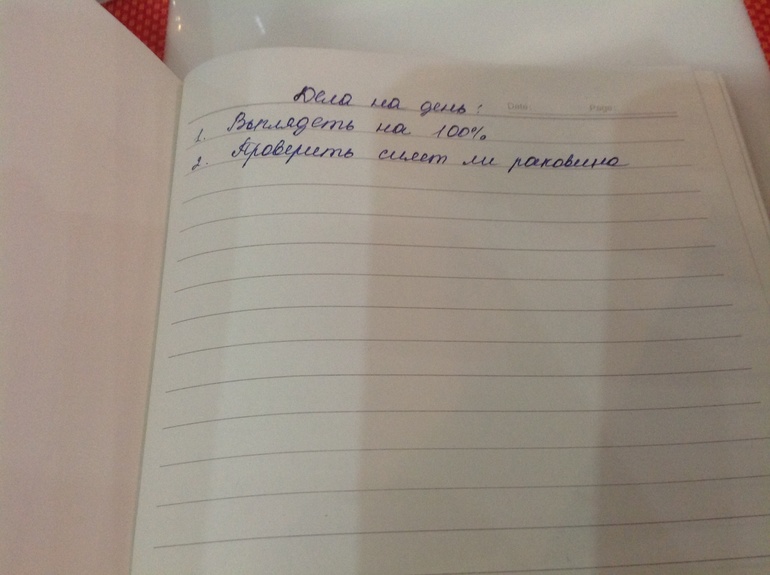 Дела на день: Date: Page:
1. Выглядеть на 100%
2. Проверить сияет ли раковина